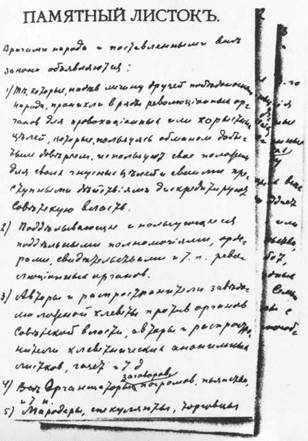 ПАМЯТНЫЙ ЛИСТОКЪ.
Врагами народа и поставленными вне
закона объявляются:
1) Те, которые, надев личину друзей
народа, проникли в ряды революционных ор-
ганов для провокационных или корыстных
целей, которые, пользуясь обманом добы-
тым доверием, используют свое положение
для своих гнусных целей и своими пре-
ступными действиями дискредитируют
Советскую власть.
2) Подделывающие и пользующиеся
поддельными полномочиями, орде-
рами, свидетельствами и т. п. рево-
люционных органов.
3) Авторы и распространители заведо-
мо ложной клеветы против органов
Советской власти, авторы и распростра-
нители клеветнических анонимных
листков, газет и т д
4) Все организаторы заговоров, погромов, пьянства
и т. п.
5) Мародеры, спекулянты, торговцы